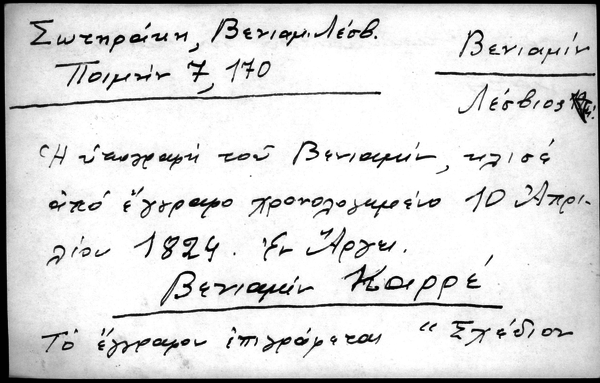 Σωτηράκη, Βενιαμ. Λέσβ.
Ποιμήν 7, 170
Βενιαμίν
Λέσβιος
Ἡ ὑπογραφή τοῦ Βενιαμίν, κλισέ
ἀπό ἔγγραφο χρονολογημένο 10 Ἀπρι-
λίου 1824. Ἐν Ἄργει.
Βενιαμίν Καρρέ
Τό ἔγγραφον ἐπιγράφεται "Σχέδιον